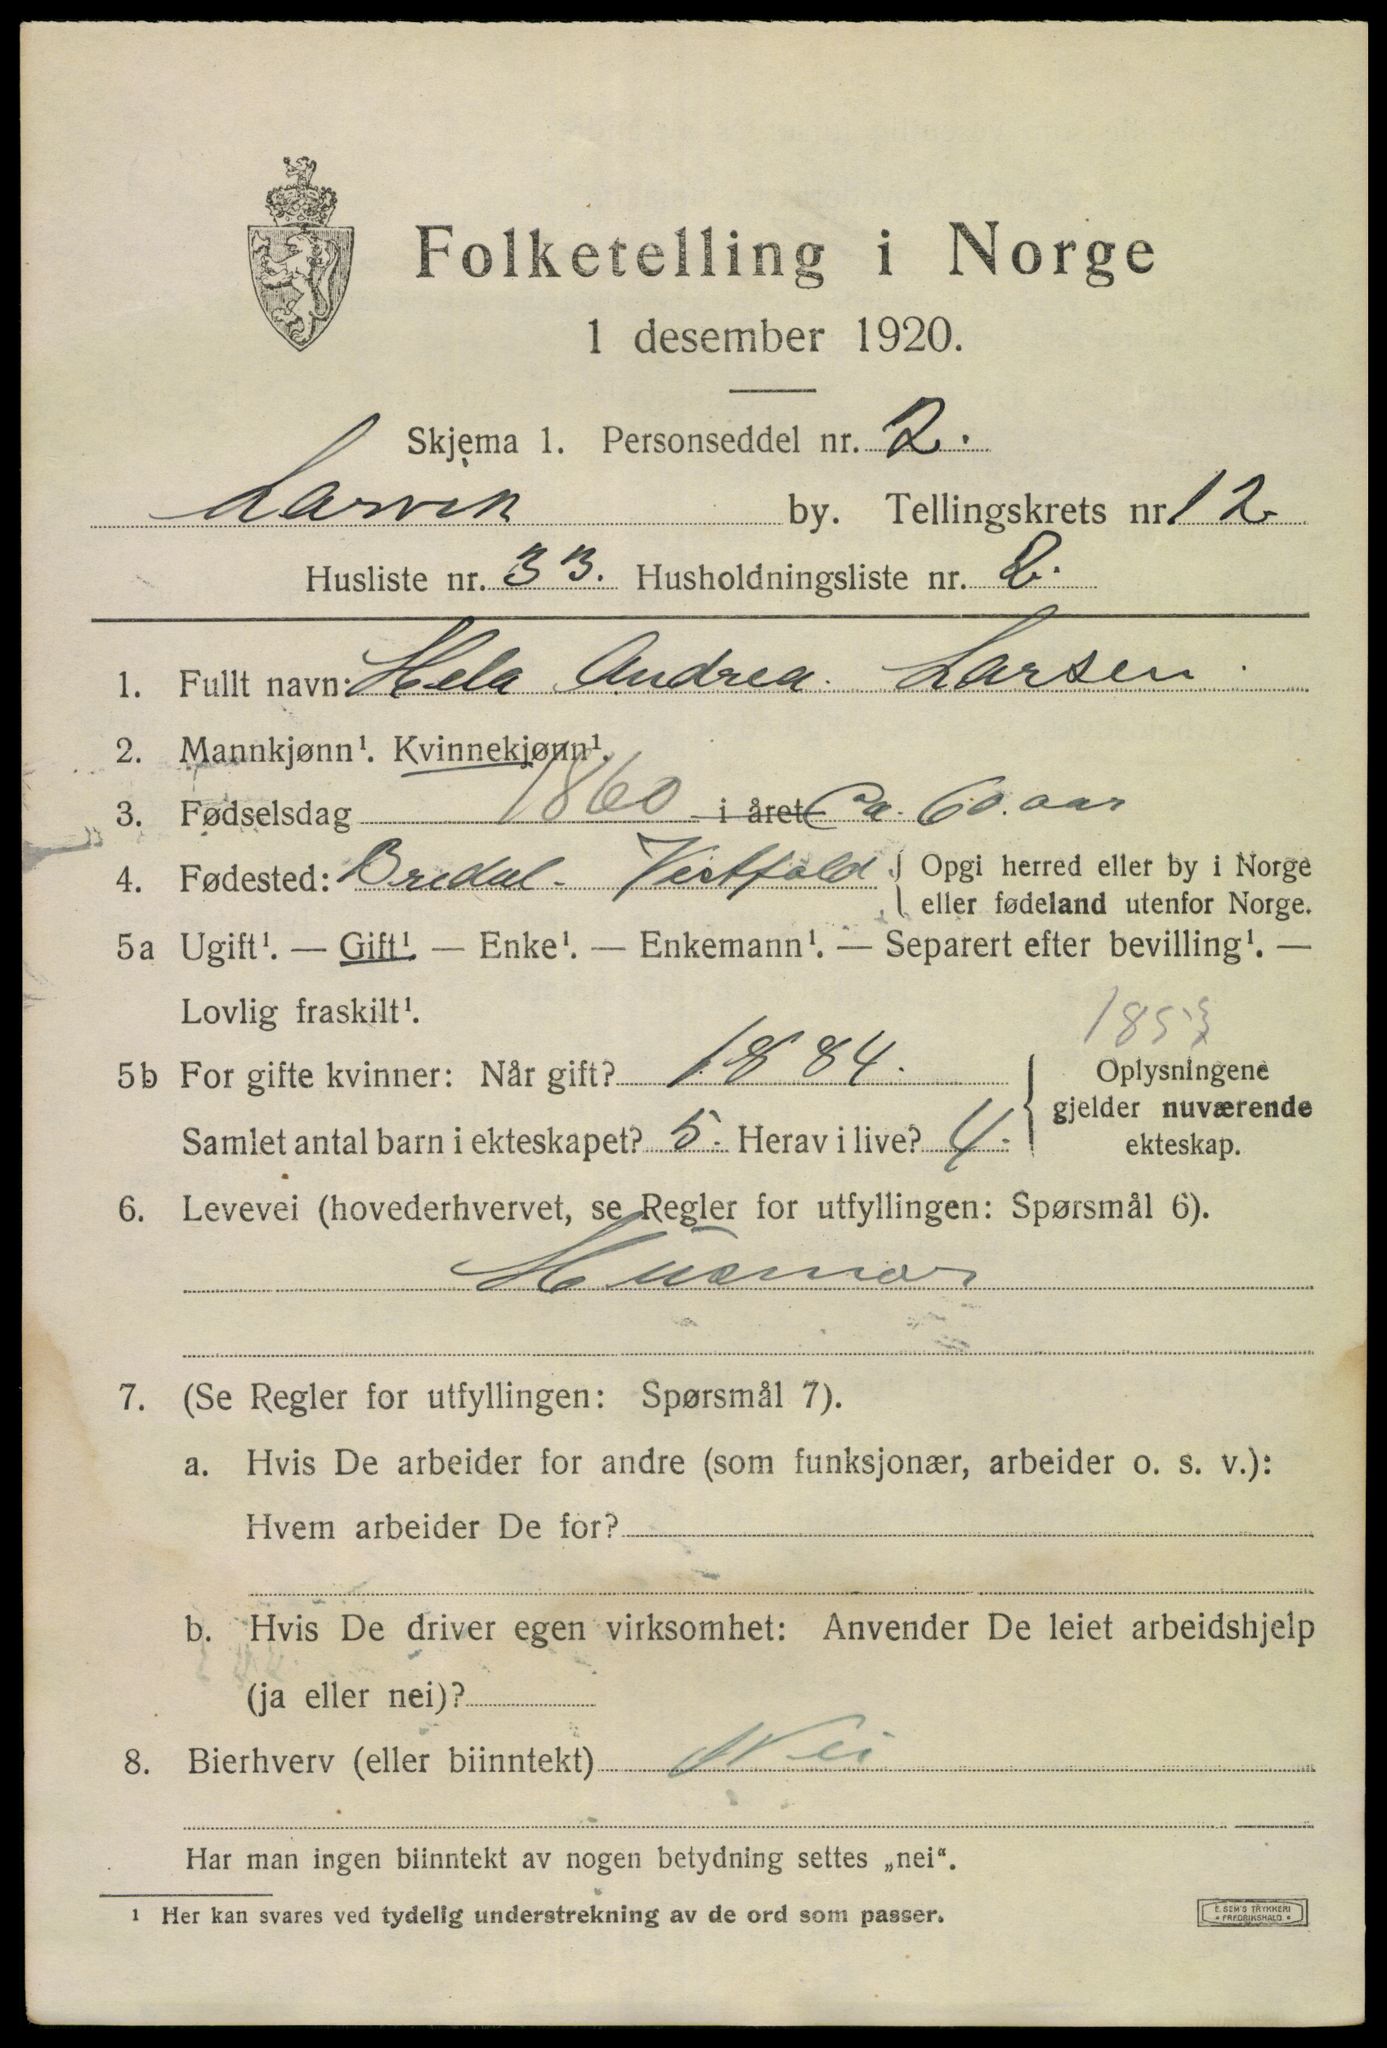 Folketelling i Norge
1 desember 1920.
Skjema 1. Personseddel nr. 2.
Larvik by. Tellingskrets nr 12.
Husliste nr. 33. Husholdningsliste nr. 2.
1. Fullt navn: Hela Andrea Larsen
2. Mannkjønn¹. Kvinnekjønn¹.
3. Fødselsdag 1860 i året Ca. 60. aar
4. Fødested: Vestfold { Opgi herred eller by i Norge
eller fødeland utenfor Norge.
5a Ugift¹. — Gift¹. — Enke¹. — Enkemann¹. — Separert efter bevilling¹. —
Lovlig fraskilt¹.
5b For gifte kvinner: Når gift? 1884.
Samlet antal barn i ekteskapet? 5. Herav i live? 4.
Oplysningene
gjelder nuværende
ekteskap.
6. Levevei (hovederhvervet, se Regler for utfyllingen: Spørsmål 6).
Husmor
7. (Se Regler for utfyllingen: Spørsmål 7).
a. Hvis De arbeider for andre (som funksjonær, arbeider o. s. v.):
Hvem arbeider De for?
b. Hvis De driver egen virksomhet: Anvender De leiet arbeidshjelp
(ja eller nei)?
8. Bierhverv (eller biinntekt) Nei
Har man ingen biinntekt av nogen betydning settes „nei“.
¹ Her kan svares ved tydelig understrekning av de ord som passer.
E. SEM'S TRYKKERI
FREDRIKSHALD